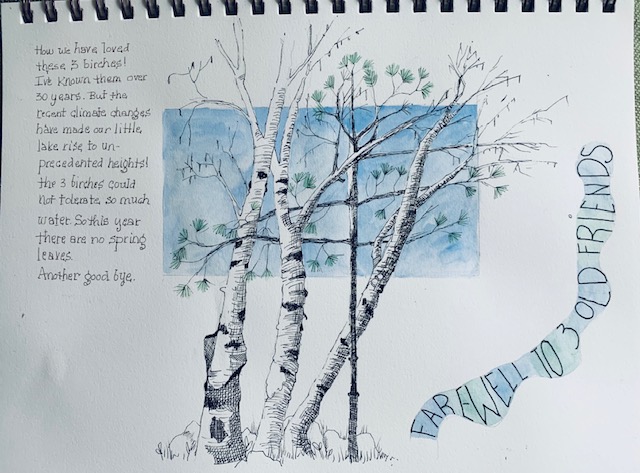 How we have loved
these 3 birches!
I've known them over
30 years. But the
recent climate changes
have made our little
lake rise to un-
precedented heights!
the 3 birches could
not tolerate so much
water. So this year
there are no spring
leaves.
Another good bye.
FAREWELL TO 3 OLD FRIENDS